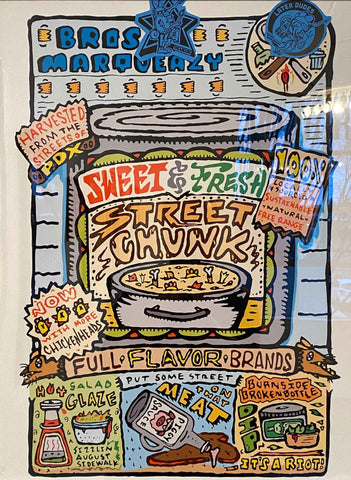 BROS
MARQUEAZY
ESTER DUDES
HARVESTED
FROM THE
STREETS OF
PDX
100%
LOCALLY
SUSTAINABLE
NATURAL
FREE RANGE
SWEET & FRESH
STREET
CHUNK
NOW
WITH MORE
CHICKENHEADS
FULL FLAVOR BRANDS
HOT SALAD
GLAZE
SIZZLIN
AUGUST
SIDEWALK
PUT SOME STREET
ON THAT
MEAT
SAUCE
BURNSIDE
BROKENBOTTLE
DIP
IT'S A RIOT!